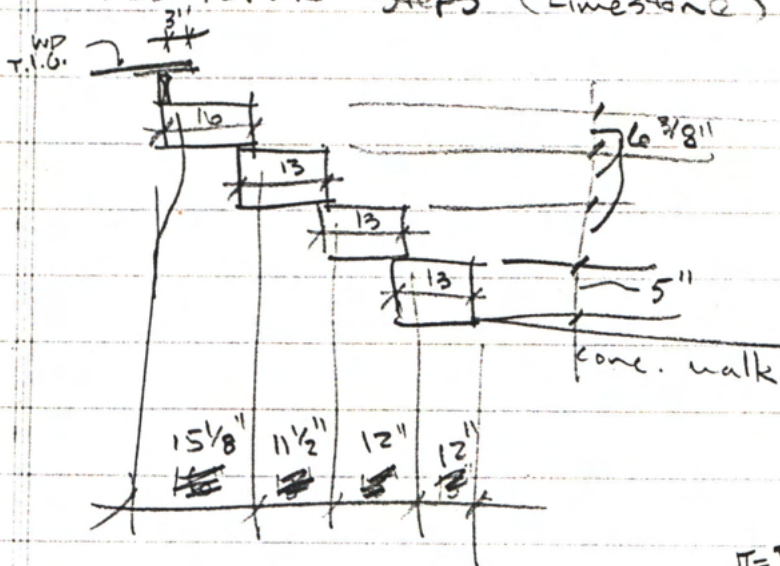 Steps (Limestone)
3"
WP
T.I.G.
16
6 3/8"
13
13
13
5"
conc. walk
15 1/8" 11 1/2" 12" 12"